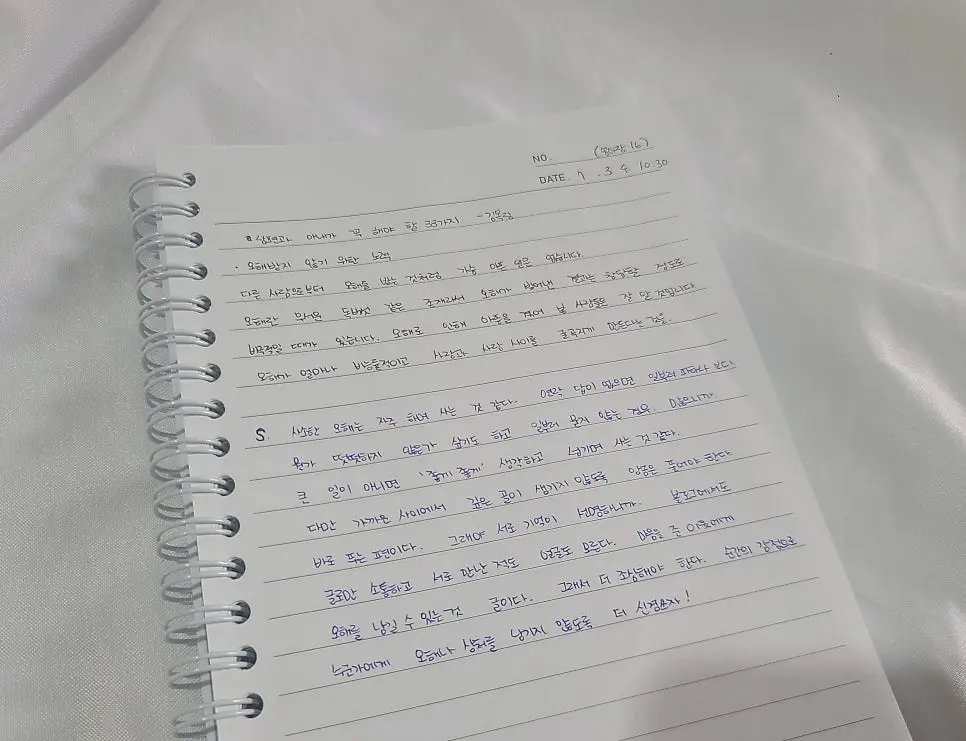 NO. (60아침 16)
DATE. 7 . 3 수 10:30
남편과 아내가 꼭 해야 할 33가지 - 김옥림
· 오해받지 않기 위한 노력
다른 사람으로부터 오해를 받는 것처럼 가슴 아픈 일은 없습니다.
오해란 무서운 독버섯 같은 존재라서 오해가 빚어낸 결과는 황당할 정도로
비극적일 때가 있습니다. 오해로 인해 아픔을 겪어 본 사람들은 잘 알 것입니다
오해가 얼마나 비능률적이고 사람과 사람 사이를 굴곡지게 만든다는 것을.
S. 사소한 오해는 자주 하며 사는 것 같다. 연락 답이 없으면 일부러 피하나 보다
뭔가 떳떳하지 않은가 싶기도 하고 일부러 묻지 않는 것은. 믿으니까.
큰 일이 아니면 '좋게 좋게' 생각하고 넘기며 사는 것 같다.
다만 가까운 사이에서 깊은 골이 생기지 않도록 앙금은 풀어야 한다
바로 푸는 편이다. 그래야 서로 기억이 선명하니까. 블로그에서도
글로만 소통하고 서로 만난 적도 얼굴도 모른다. 마음을 준 이웃에게
오해를 남길 수 있는 것 글이다. 그래서 더 조심해야 한다. 순간의 감정으로
누군가에게 오해나 상처를 남기지 않도록 더 신경쓰자!